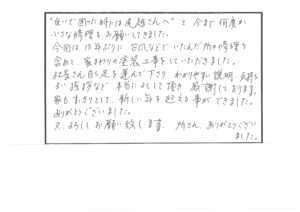 "住いで困った時には尾越さんへ" と 今まで何度か
小さな修理をお願いしてきました。
今回は 15年ぶりに 台風などでいたんだ所の修理を
含めて、家まわりの塗装工事をしていただきました。
社長さん自ら足を運んで下さり、わかりやすい説明、気持ち
よい挨拶など 本当によくして頂き 感謝しております。
家もすっきりとして、新しい年を迎える事ができました。
ありがとうございました。
又、よろしくお願い致します。 所さん、ありがとうござい
ました。